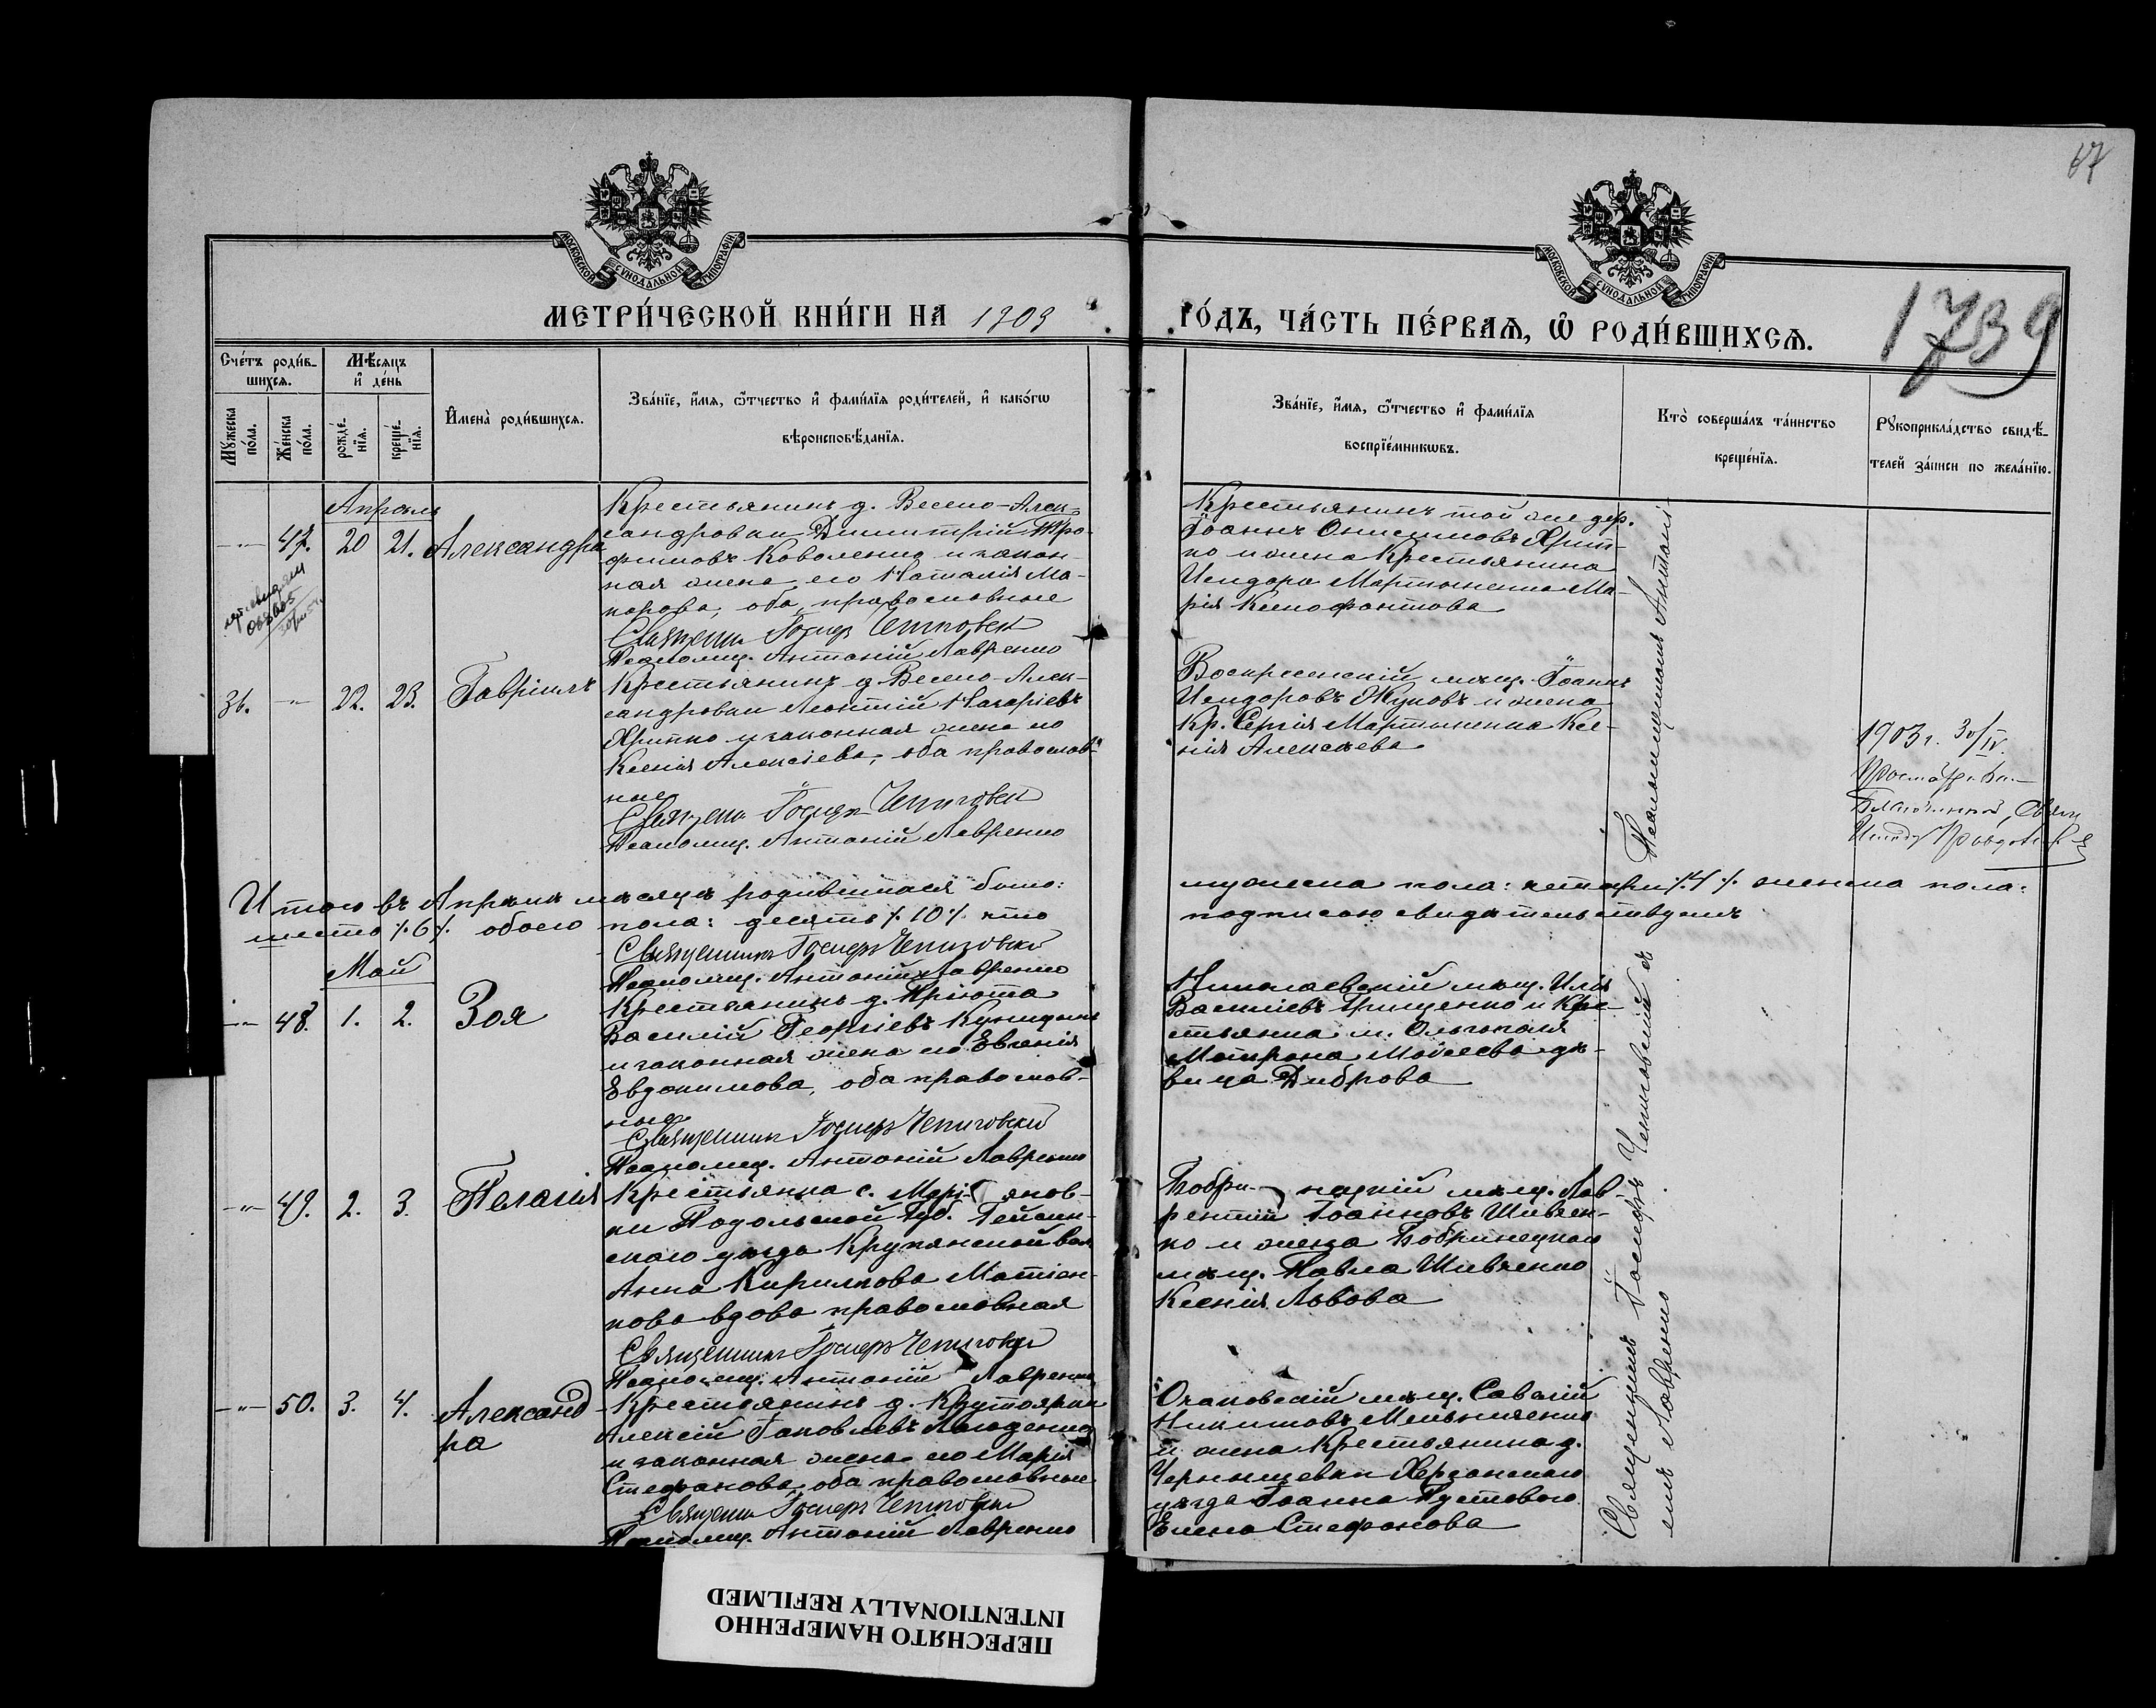 67
МОСКОВСКОЙ СѴНОДАЛЬНОЙ ТИПОГРАФІИ
МОСКОВСКОЙ СѴНОДАЛЬНОЙ ТИПОГРАФІИ
МЕТРИ́ЧЕСКОЙ КНИ́ГИ НА 1903 ГО́ДЪ, ЧА́СТЬ ПЕ́РВАѦ, Ѽ РОДИ́ВШИХСѦ.
1739
Сче́тъ роди́в-
шихсѧ.
Мѣ́сѧцъ
и҆ де́нь
Мꙋ́жеска
по́ла.
Же́нска
по́ла.
рожде́-
нїѧ.
креще́-
нїѧ.
И҆мена̀ роди́вшихсѧ.
Зва́нїе, и҆́мѧ, ѻ҆́тчество и҆ фами́лїѧ роди́телей, и҆ како́гѡ
вѣроисповѣ́данїѧ.
Зва́нїе, и҆́мѧ, ѻ҆́тчество и҆ фами́лїѧ
воспрїе́мникѡвъ.
Кто̀ соверша́лъ та́инство
креще́нїѧ.
Рꙋкоприкла́дство свидѣ́-
телей за́писи по жела́нїю.
Апрѣль
47. 20 21. Александра
Крестьянинъ д. Весело-Алек-
сандровки Димитрій Тро-
фимовъ Коваленко и закон-
ная жена его Наталія Ма-
карова, оба православные
Священн. Іосифъ Чепиговск
Псаломщ. Антоній Лавренко
Крестьянинъ той же дер.
Іоаннъ Онисимовъ Хрип-
ко и жена Крестьянина
Исидора Мартыненка Ма-
рія Ксенофонтова
36. 22. 23. Гавріилъ
Крестьянинъ д. Весело-Алек-
сандровки Леонтій Назаріевъ
Хрипко и законная жена его
Ксенія Алексіева, оба православ-
ные
Священ. Іосифъ Чепиговск
Псаломщ. Антоній Лавренко
Воскресенскій мѣщ. Іоаннъ
Исидоровъ Жуковъ и жена
Кр. Сергія Мартыненка Ксе-
нія Алексѣева
1903 г. 30/IV.
Благочинный, Свящ
Итого въ Апрѣлѣ мѣсяцѣ родившихся было: мужеска пола: четыри ٪4٪ женска пола:
шесть ٪6٪ обоего пола: десять ٪10٪ что подписью свидѣтельствуемъ
Священникъ Іосифъ Чепиговскій
Псаломщ. Антоній Лавренко
Май
48. 1. 2. Зоя
Крестьянинъ д. Пріюта
Василій Георгіевъ
и законная жена его Евгенія
Евдокимова, оба православ-
ные
Священникъ Іосифъ Чепиговскій
Псаломщ. Антоній Лавренко
Николаевскій мѣщ. Илія
Василіевъ Грищенко и Кре-
стьянка м. Ольгополя
Матрона Моисеева дѣ-
вица Диброва
49. 2. 3. Пелагія
Крестьянка с. Марі- янов-
ки Подольской губ. Гайсин-
скаго уѣзда Крупянской вол
Анна Кириллова Матіен-
кова вдова православная
Священникъ Іосифъ Чепиговскій
Псаломщ. Антоній Лавренко
Бобри- нецкій мѣщ. Лав-
рентій Іоанновъ Шевчен-
ко и жена Бобринецкаго
мѣщ. Павла Шевченко
Ксенія Львова
50. 3. 4. Александ
ра
Крестьянинъ д. Крутоярки
Алексій Іаковлевъ
и законная жена его Марія
Стефанова, оба православные
Священн Іосифъ Чепиговскій
Псаломщ. Антоній Лавренко
Очаковскій мѣщ. Савелій
Никитовъ Мельниченко
и жена Крестьянина д.
Чернышевки Херсонскаго
уѣзда Іоанна Пустоваго
Елена Стефанова
Священникъ Іосифъ Чепиговскій съ Псаломщикомъ Антоні-
емъ Лавренко
ПЕРЕСНЯТО НАМЕРЕННО
INTENTIONALLY REFILMED